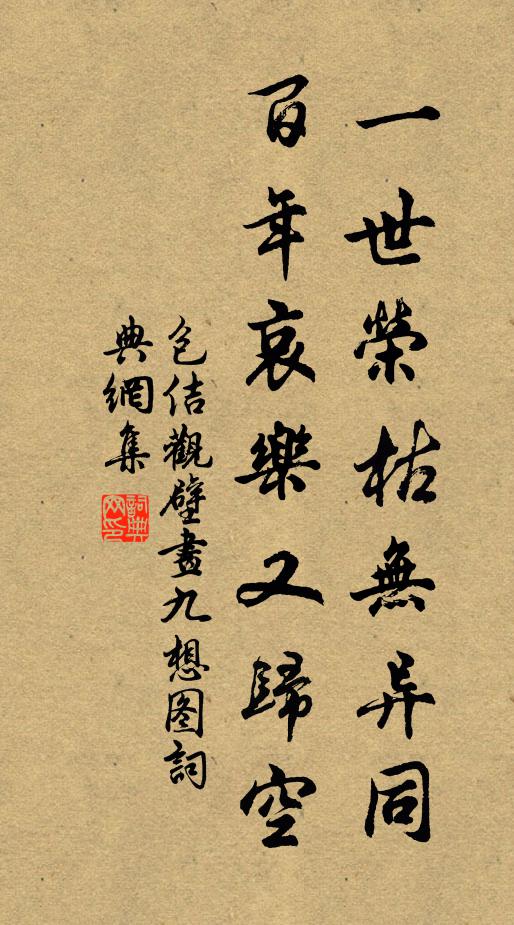 一世榮枯無异同
百年哀樂又歸空
包佶觀壁畫九想图詞
典網集
詞典网印